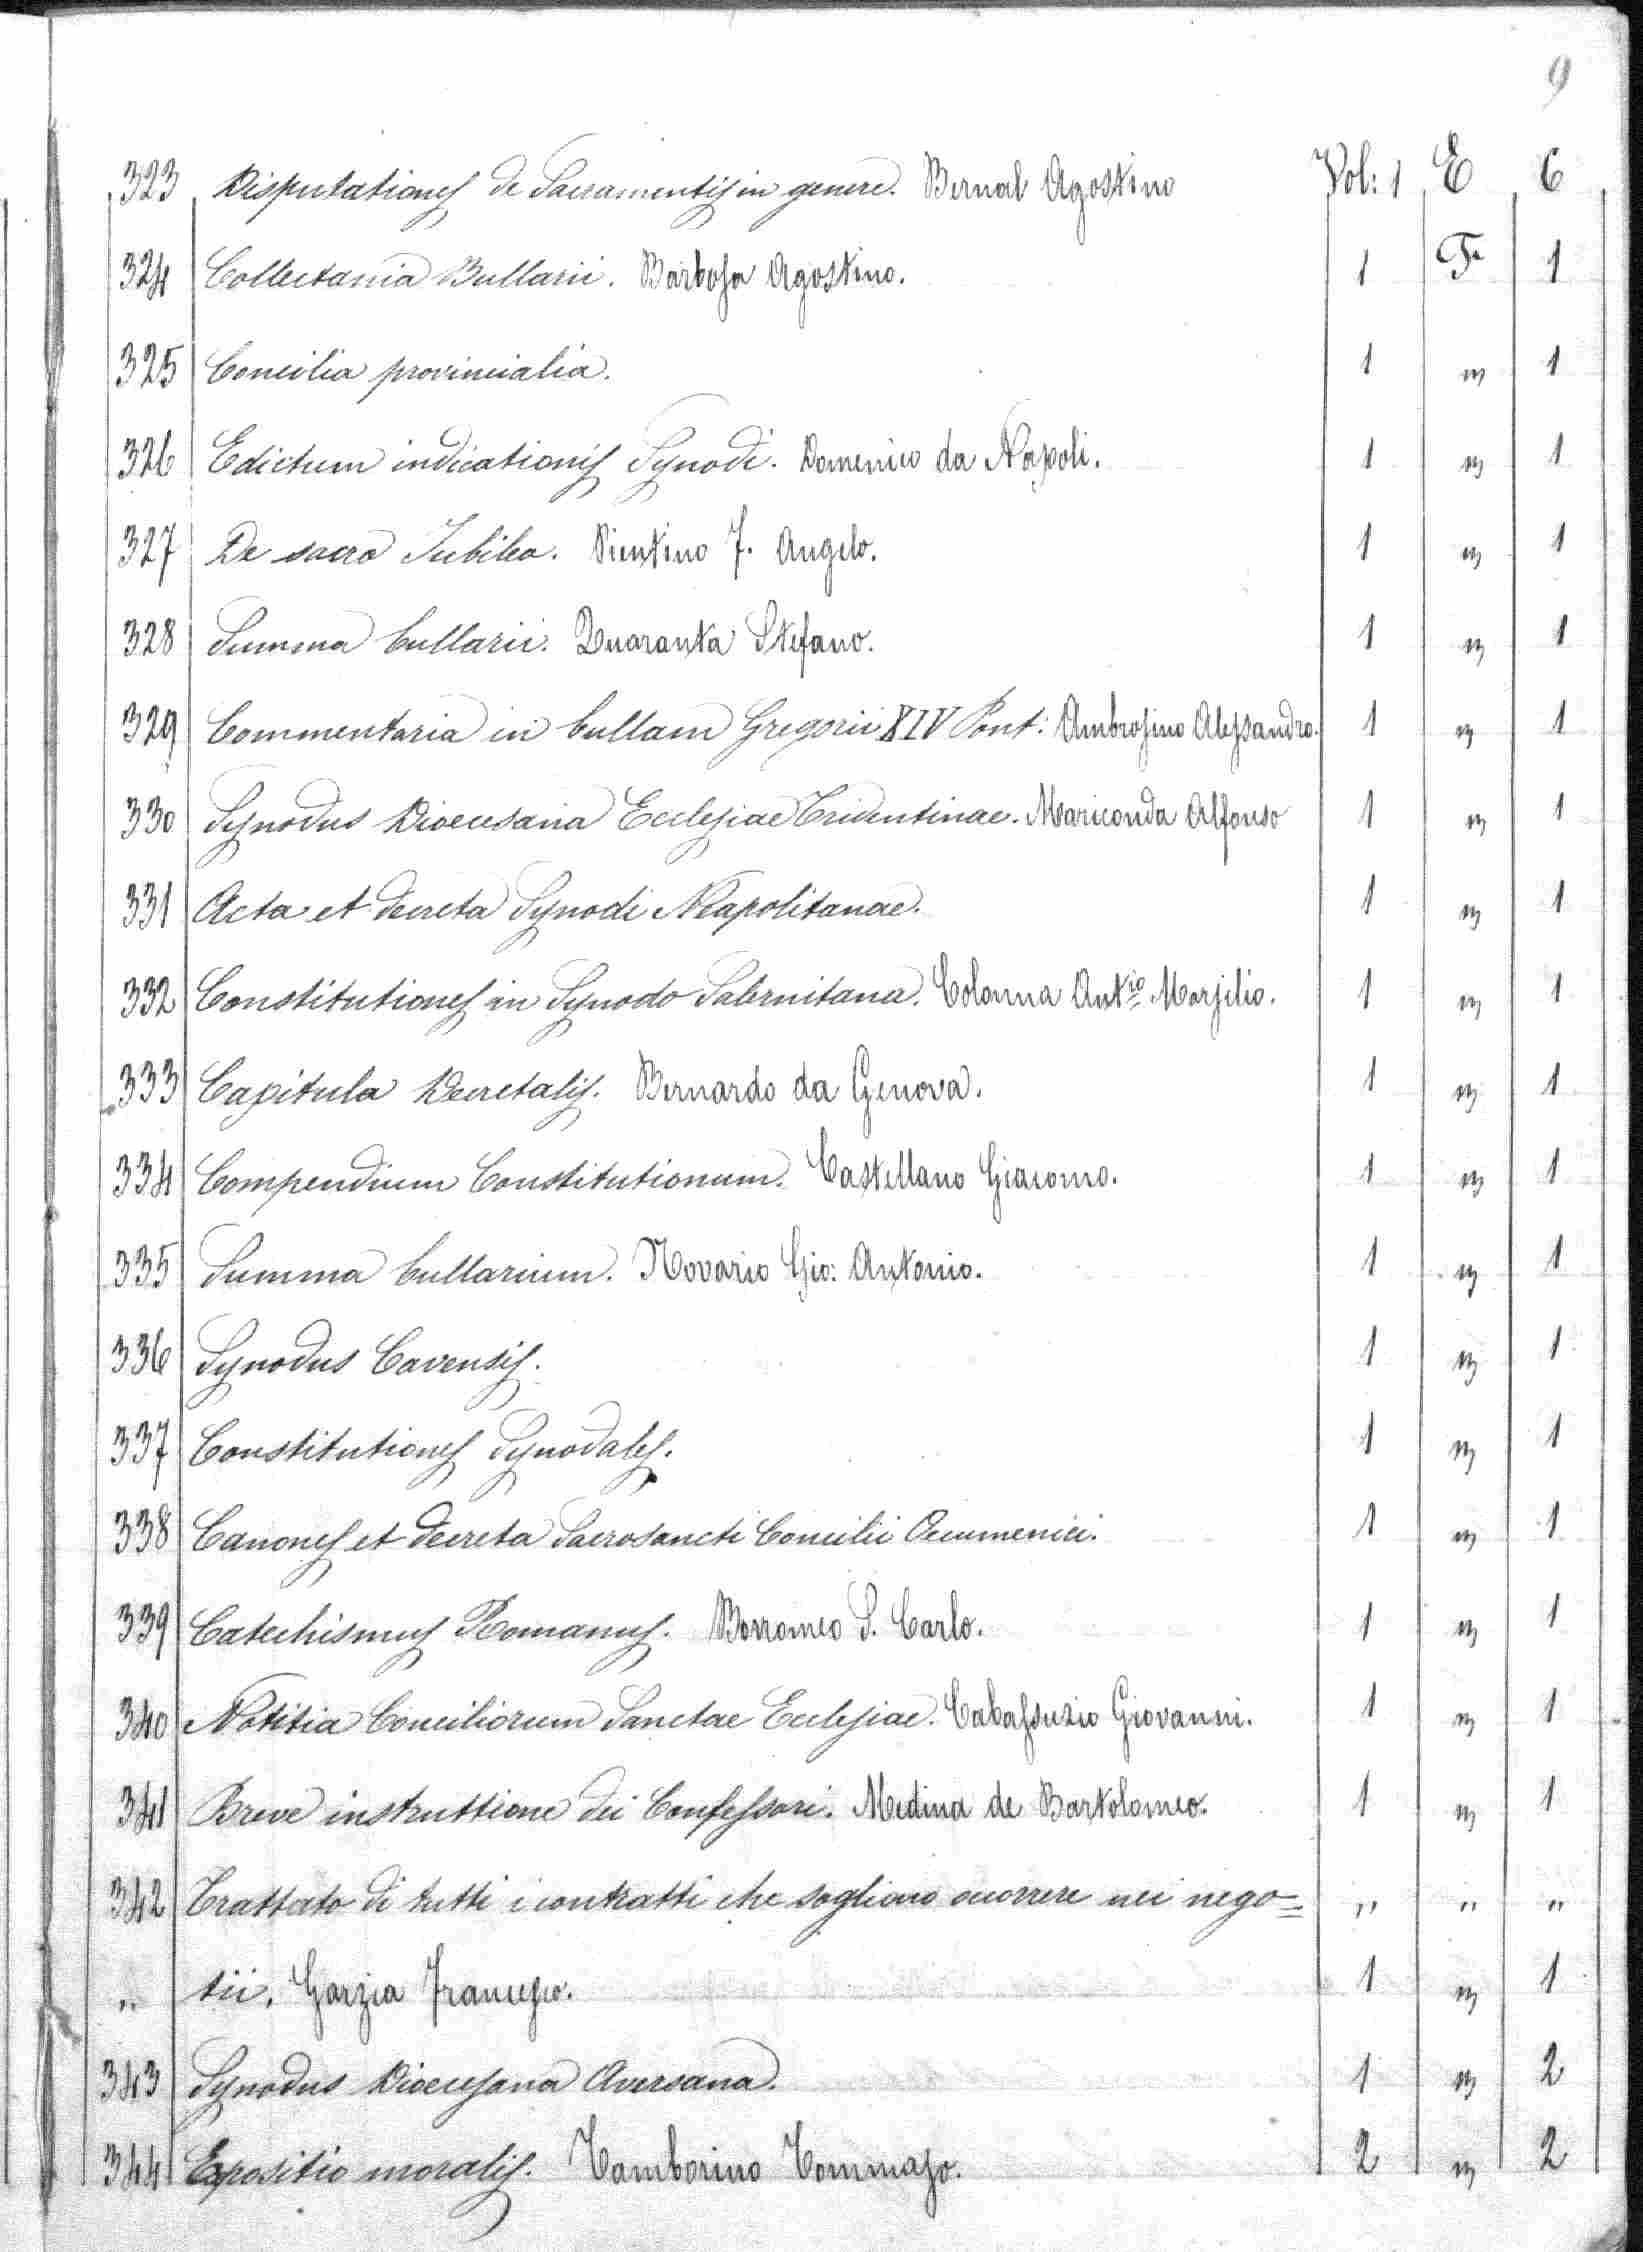 9
323 Disputationes de Sacramentis in genere. Bernal Agostino Vol: 1 E 6
324 Collectania Bullarii. Barbosa Agostino. 1 F 1
325 Concilia provincialia. 1 " 1
326 Edictum indicationis Synodi. Domenico da Napoli. 1 " 1
327 De sacro Jubileo. Pientino F. Angelo. 1 " 1
328 Summa bullarii. Quaranta Stefano. 1 " 1
329 Commentaria in bullam Gregorii XIV Pont: Ambrosino Alessandro. 1 " 1
330 Synodus Dioecesana Ecclesiae Tridentinae. Mariconda Alfonso 1 " 1
331 Acta et decreta Synodi Neapolitanae. 1 " 1
332 Constitutiones in Synodo Salernitana. Colonna Antio Marsilio. 1 " 1
333 Capitula Decretalis. Bernardo da Genova. 1 " 1
334 Compendium Constitutionum. Castellano Giacomo. 1 " 1
335 Summa bullarium. Novario Gio: Antonio. 1 " 1
336 Synodus Cavensis. 1 " 1
337 Constitutiones Synodales. 1 " 1
338 Canones et decreta Sacrosancti Concilii Oecumenici. 1 " 1
339 Catechismus Romanus. Borromeo S. Carlo. 1 " 1
340 Notitia Conciliorum Sanctae Ecclesiae. Cabassuzio Giovanni. 1 " 1
341 Breve instruttione dei Confessori. Medina de Bartolomeo. 1 " 1
342 Trattato di tutti i contratti che sogliono ocorrere nei nego= " " "
" tii. Garzia Francesco. 1 " 1
343 Synodus Diocesana Aversana. 1 " 2
344 Expositio moralis. Tamborino Tommaso. 2 " 2